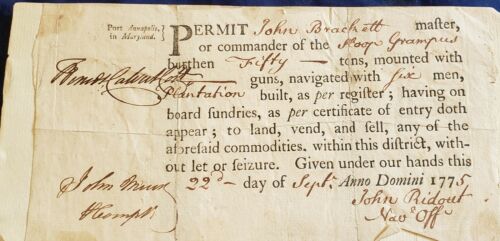 Port Annapolis,
in Maryland.
PERMIT John Brackett master,
or commander of the Sloop Grampus
burthen Fifty — tons, mounted with
— guns, navigated with six men,
Plantation built, as per register; having on
board sundries, as per certificate of entry doth
appear; to land, vend, and sell, any of the
aforesaid commodities. within this district, with-
out let or seizure. Given under our hands this
22d — day of Sept. Anno Domini 1775
John Ridout
Navl Offr
John
Compt